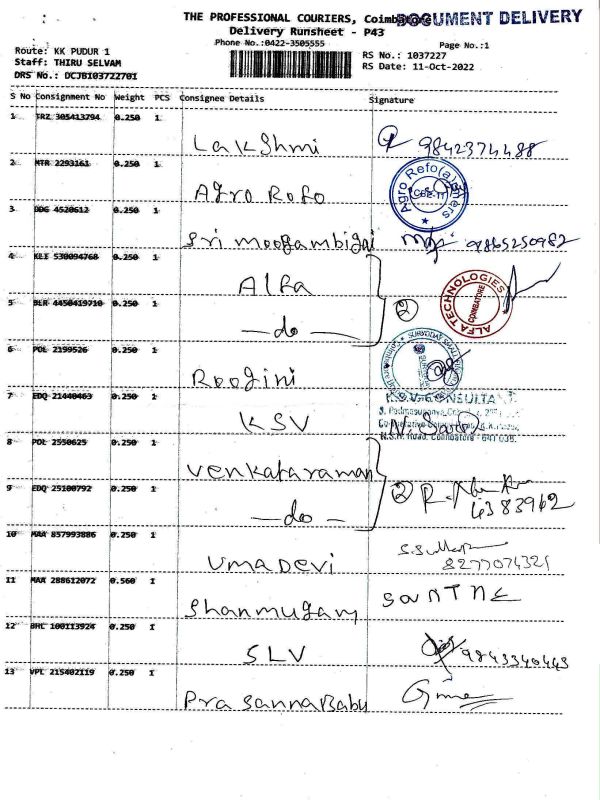 THE PROFESSIONAL COURIERS, Coimbatore
DOCUMENT DELIVERY
Delivery Runsheet - P43
Phone No.:0422-3505555
Page No.:1
Route: KK PUDUR 1
RS No.: 1037227
Staff: THIRU SELVAM
RS Date: 11-Oct-2022
DRS No.: DCJB103722701
S No Consignment No Weight PCS Consignee Details Signature
1 TRZ 305413794 0.250 1
Lakshmi 9842374488
2 MTR 2293161 0.250 1
Agro Rofo
Agro Refo(a)mers
CBE-11
3 DDG 4520612 0.250 1
Sri moogambigai 9865250982
4 KLI 530094768 0.250 1
Alfa
ALFA TECHNOLOGIES
COIMBATORE
5 BLR 4450419710 0.250 1
-do- 2
6 POL 2199526 0.250 1
Roogini
SURYODAY SMALL
7 EDQ 21440463 0.250 1
KSV
K.S.V. CONSULTA
N.S.R. Road, Coimbatore - 641 038.
8 POL 2550625 0.250 1
Venkataraman
9 EDQ 25100792 0.250 1
-do- 2 4383962
10 MAA 857993886 0.250 1
Uma Devi 8277074321
11 MAA 288612072 0.560 1
Shanmugam
12 BHL 100113924 0.250 1
SLV 9843340443
13 VPL 215402119 0.250 1
Prasanna Babu